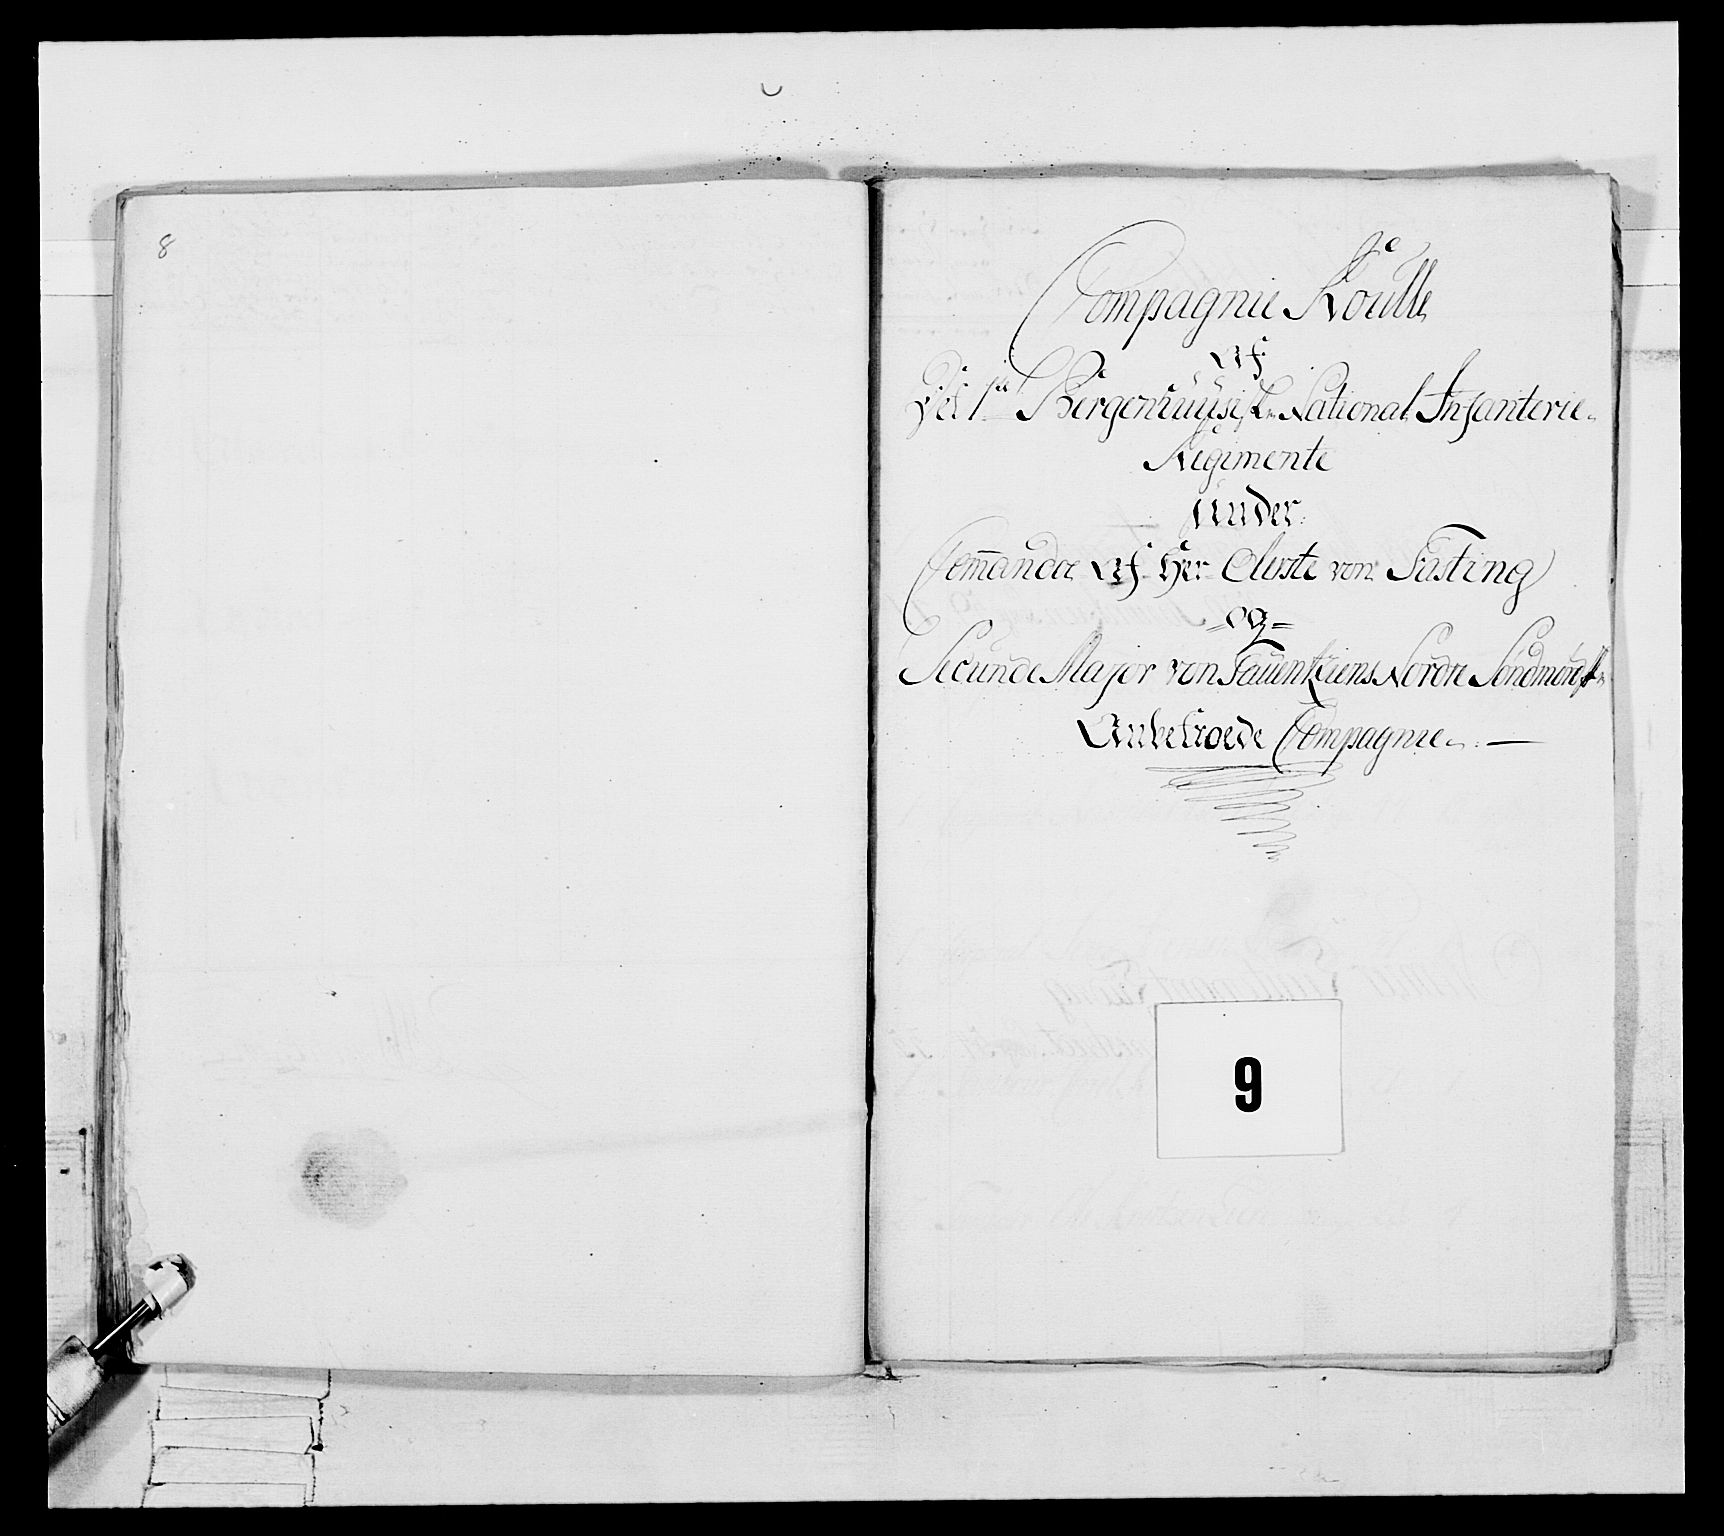 8
Compagnie Roulle
Af
Det 1te Bergenhuusiske National Infanterie
Regimente
Under
Commando Af Her Oberste von Fasting
og
Secunde Major von Tauentziens Nordre Söndmörske
Anbetroede Compagnie
9